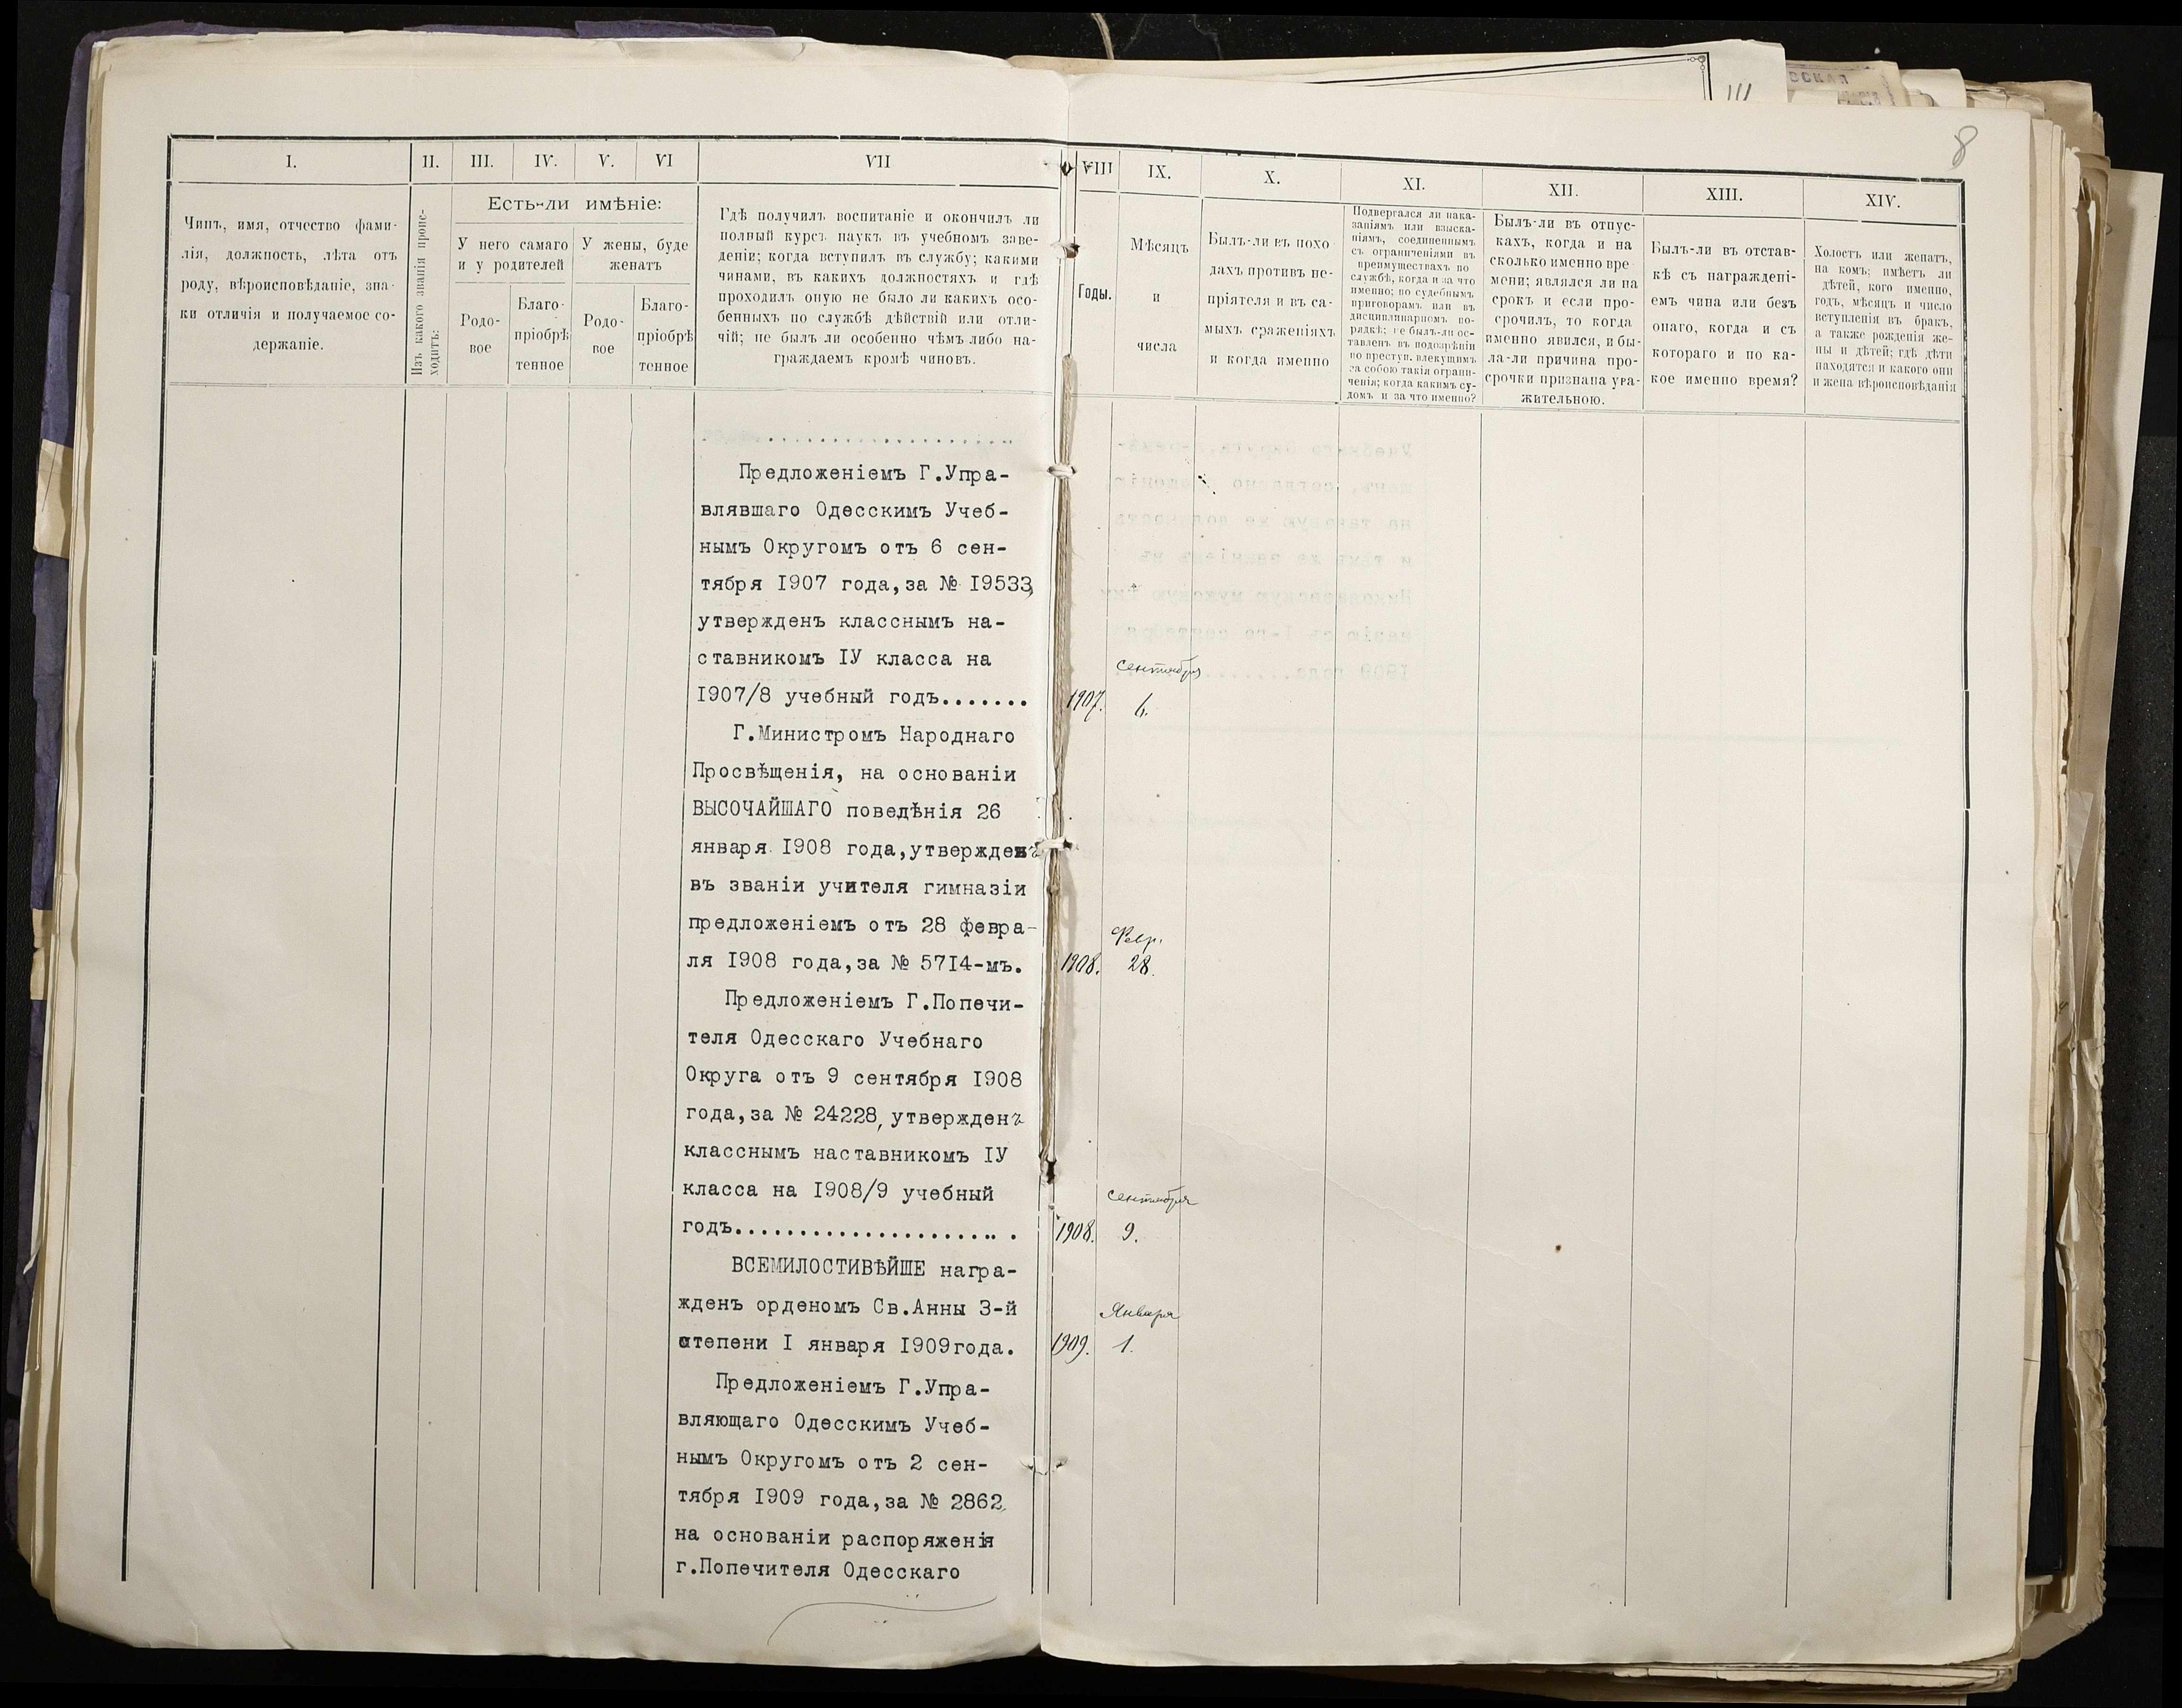 8
I.
II.
III.
IV.
V.
VI
VII
VIII
IX.
X.
XI.
XII.
XIII.
XIV.
Чинъ, имя, отчество фами-
лія, должность, лѣта отъ
роду, вѣроисповѣданіе, зна-
ки отличія и получаемое со-
держаніе.
Изъ какого званія проис-
ходитъ:
Есть-ли имѣніе:
У него самаго
и у родителей
У жены, буде
женатъ
Родо-
вое
Благо-
пріобрѣ
тенное
Родо-
вое
Благо-
пріобрѣ
тенное
Гдѣ получилъ воспитаніе и окончилъ ли
полный курсъ наукъ въ учебномъ заве-
деніи; когда вступилъ въ службу; какими
чинами, въ какихъ должностяхъ и гдѣ
проходилъ оную не было ли какихъ осо-
бенныхъ по службѣ дѣйствій или отли-
чій; не былъ ли особенно чѣмъ либо на-
граждаемъ кромѣ чиновъ.
Годы.
Мѣсяцъ
и
числа
Былъ-ли въ похо
дахъ противъ не-
пріятеля и въ са-
мыхъ сраженіяхъ
и когда именно
Подвергался ли нака-
заніямъ или взыска-
ніямъ, соединеннымъ
съ ограниченіями въ
преимуществахъ по
службѣ, когда и за что
именно; по судебнымъ
приговорамъ или въ
дисциплинарномъ по-
рядкѣ; не былъ-ли ос-
тавленъ въ подозрѣніи
по преступ. влекущимъ
за собою такія ограни-
ченія; когда какимъ су-
домъ и за что именно?
Былъ-ли въ отпус-
кахъ, когда и на
сколько именно вре
мени; являлся ли на
срокъ и если про-
срочилъ, то когда
именно явился, и бы-
ла-ли причина про-
срочки признана ува-
жительною.
Былъ-ли въ отстав-
кѣ съ награжденi-
емъ чина или безъ
онаго, когда и съ
котораго и по ка-
кое именно время?
Холостъ или женатъ,
на комъ; имѣетъ ли
дѣтей, кого именно,
годъ, мѣсяцъ и число
вступленія въ бракъ,
а также рожденія же-
ны и дѣтей; гдѣ дѣти
находятся и какого они
и жена вѣроисповѣданія
Предложеніемъ Г.Упра-
влявшаго Одесскимъ Учеб-
нымъ Округомъ отъ 6 сен-
тября I907 года,за № I9533,
утвержденъ класснымъ на-
ставникомъ IУ класса на
I907/8 учебный годъ.......
сентября
1907. 6.
Г.Министромъ Народнаго
Просвѣщенія, на основаніи
ВЫСОЧАЙШАГО поведѣнія 26
января I908 года,утвержденъ
въ званіи учителя гимназіи
предложеніемъ отъ 28 февра-
ля I908 года,за № 57I4-мъ.
Февр.
1908. 28.
Предложеніемъ Г.Попечи-
теля Одесскаго Учебнаго
Округа отъ 9 сентября I908
года,за № 24228, утвержденъ
класснымъ наставникомъ IУ
класса на I908/9 учебный
годъ......................
сентября
1908. 9.
ВСЕМИЛОСТИВѢЙШЕ награ-
жденъ орденомъ Св.Анны 3-й
степени I января I909года.
Января
1909. 1.
Предложеніемъ Г.Упра-
вляющаго Одесскимъ Учеб-
нымъ Округомъ отъ 2 сен-
тября I909 года,за № 2862,
на основаніи распоряженія
г.Попечителя Одесскаго